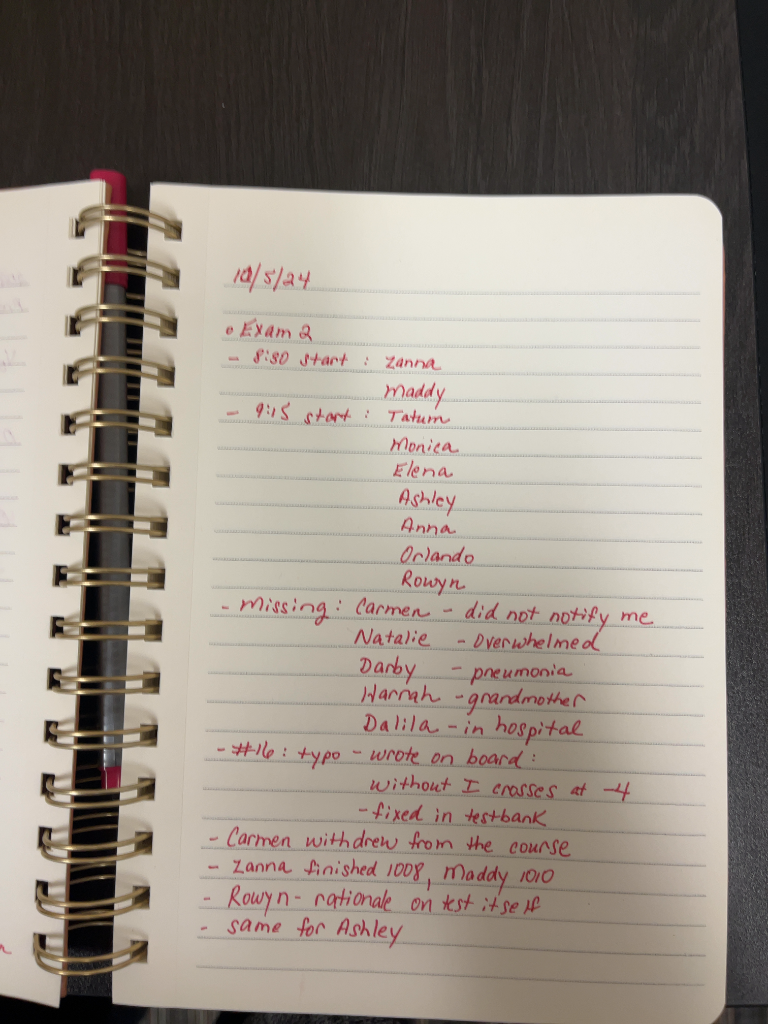 10/5/24
• Exam 2
- 8:30 start : Zanna
Maddy
- 9:15 start : Tatum
Monica
Elena
Ashley
Anna
Orlando
Rowyn
- Missing : Carmen - did not notify me
Natalie - Overwhelmed
Darby - pneumonia
Hannah - grandmother
Dalila - in hospital
- #16 : typo - wrote on board :
without I crosses at -4
- fixed in testbank
- Carmen withdrew from the course
- Zanna finished 1008, Maddy 1010
- Rowyn - rationale on test itself
- same for Ashley